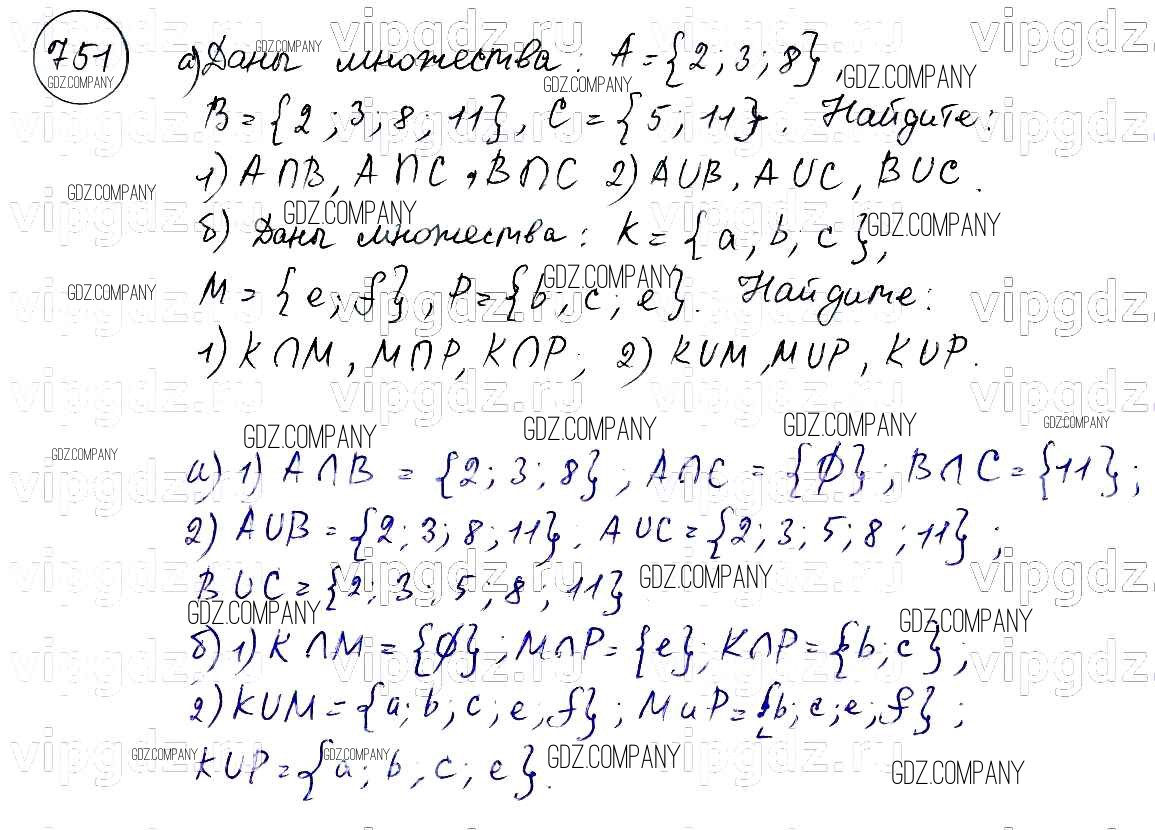 751 а) Даны множества: A = {2; 3; 8},
B = {2; 3; 8; 11}, C = {5; 11}. Найдите:
1) A∩B, A∩C, B∩C 2) A∪B, A∪C, B∪C.
б) Даны множества: K = {a, b, c},
M = {e; f}, P = {b; c; e}. Найдите:
1) K∩M, M∩P, K∩P; 2) K∪M, M∪P, K∪P.
а) 1) A∩B = {2; 3; 8}; A∩C = {∅}; B∩C = {11};
2) A∪B = {2; 3; 8; 11}; A∪C = {2; 3; 5; 8; 11};
B∪C = {2; 3; 5; 8, 11}
б) 1) K∩M = {∅}; M∩P = {e}; K∩P = {b; c};
2) K∪M = {a; b; c; e; f}; M∪P = {b; c; e; f};
K∪P = {a; b; c; e}.
GDZ.COMPANY
vipgdz.ru